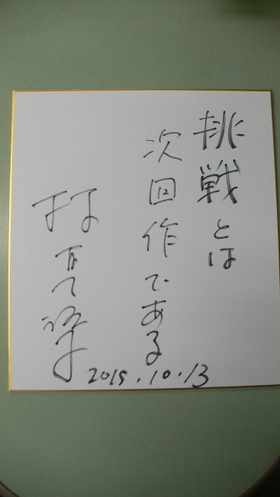 挑戦とは
次回作である
2015.10.13